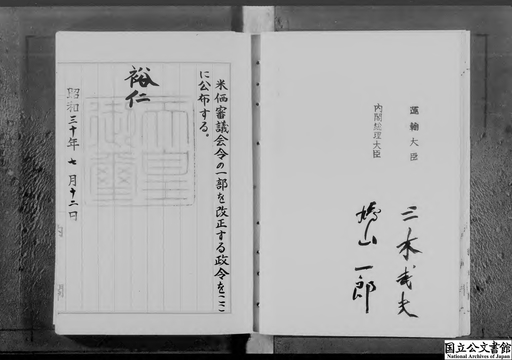 米価審議会令の一部を改正する政令をここ
に公布する。
裕仁
天皇御璽
昭和三十年七月十二日
運輸大臣 三木武夫
内閣総理大臣 鳩山一郎
国立公文書館
National Archives of Japan